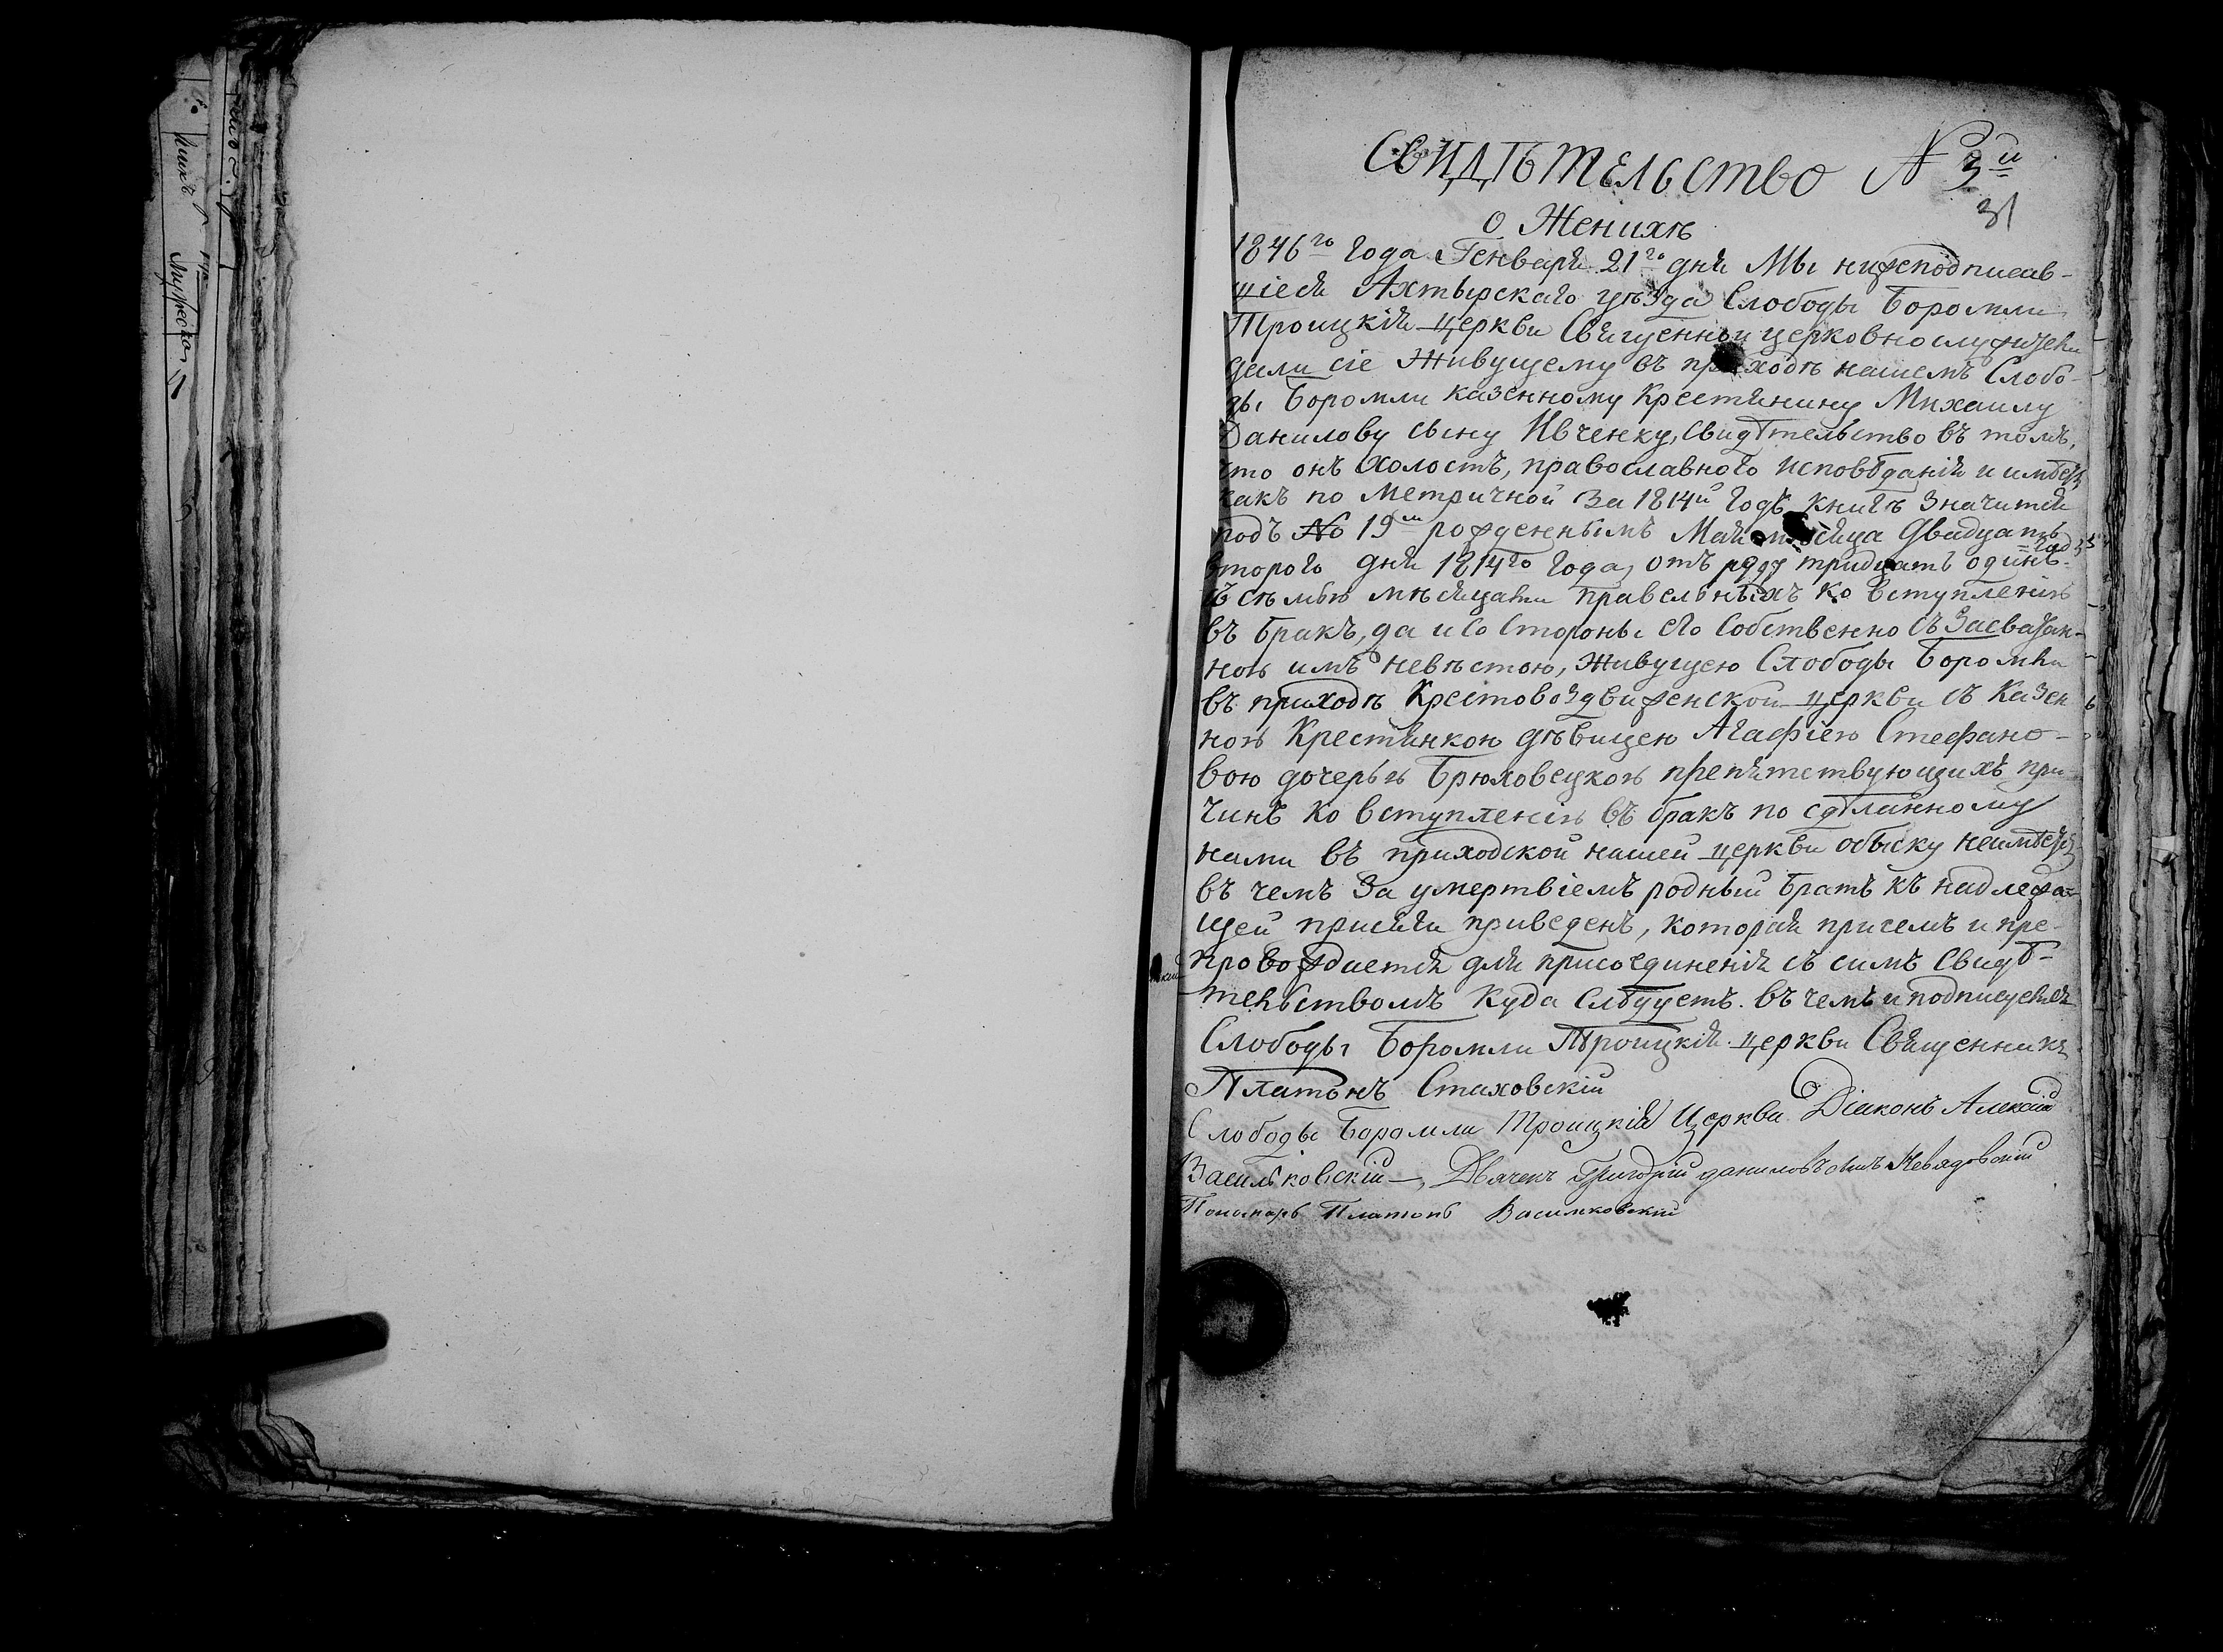 Свидѣтельство № 3й
31
о Женихѣ
1846го года Генваря 21го дня Мы нижеподписав-
шіеся Ахтырскаго уѣзда Слободы Боромли
Троицкія церкви Священно и церковнослужители
дали сіе Живущему въ приходѣ нашемъ Слобо-
ды Боромли казенному Крестянину Михаилу
Данилову сыну Ивченку, Свидѣтельство въ томъ,
что онъ Холостъ, православного исповѣданія и имѣетъ
какъ по Метричной За 1814й Годъ Книгѣ Значится
подъ № 19м рожденнымъ Мая мѣсяца двадцать
второго дня 1814го Года, отъ роду тридцать одинъ годъ
съ семью мѣсяцами правельныхъ ко вступленію
въ бракъ, да и со Стороны его Собственно съ Засватан-
ною имъ невѣстою, Живущею Слободы Боромли
въ приходѣ Крестовоздвиженской церкви съ Казен
ною Крестянкою дѣвицею Агафіею Стефано-
вою дочерью Брюховецкою препятствующихъ при-
чинъ ко вступленію въ бракъ по сдѣланному
нами въ приходской нашей церкви обыску неимѣетъ
въ чемъ За умертвіемъ родный братъ къ надлежа-
щей присяги приведенъ, которая причемъ и пре-
провождается для присоединенія съ симъ Свидѣ-
тельствомъ Куда Слѣдуетъ. въ чемъ и подписуемся
Слободы Боромли Троицкія церкви Священникъ
Платонъ Стаховскій
Слободы Боромли Троицкія Церкви Діаконъ Алексій
Васильковскій, Дьячекъ Григорій даниловъ сынъ
Пономарь Платонъ Василковскій